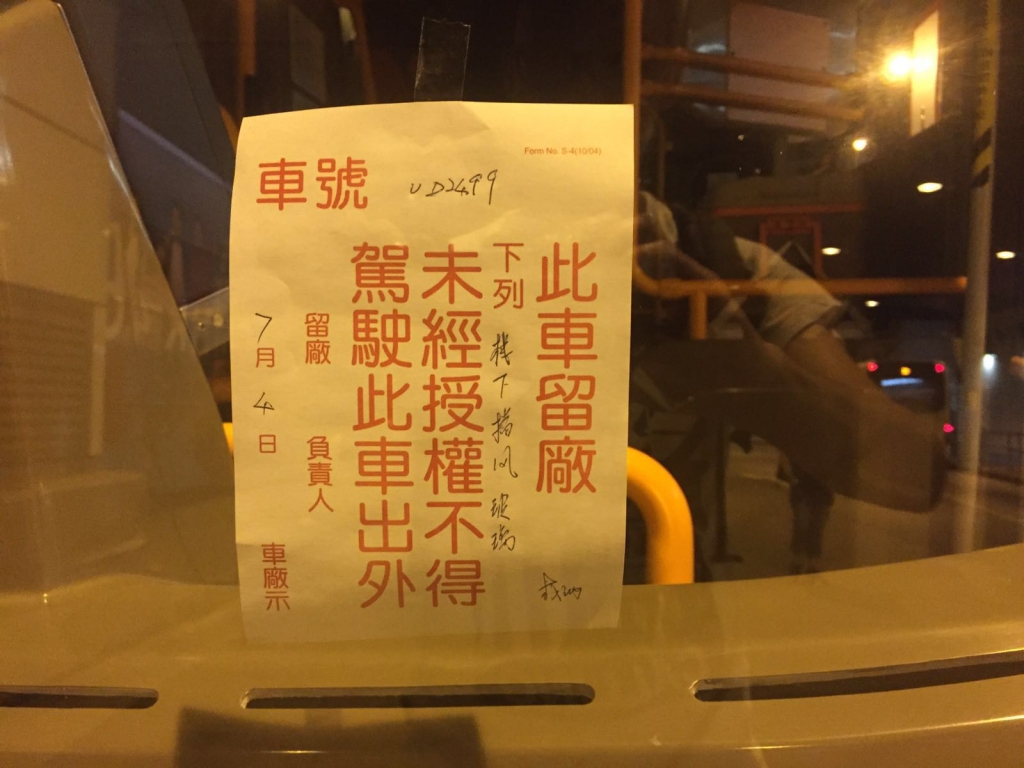 Form No. S-4(10/04)
車號 UD2499
此車留廠
下列 換下擋风玻璃
未經授權不得
駕駛此車出外
留廠 負責人
7月4日 車廠示